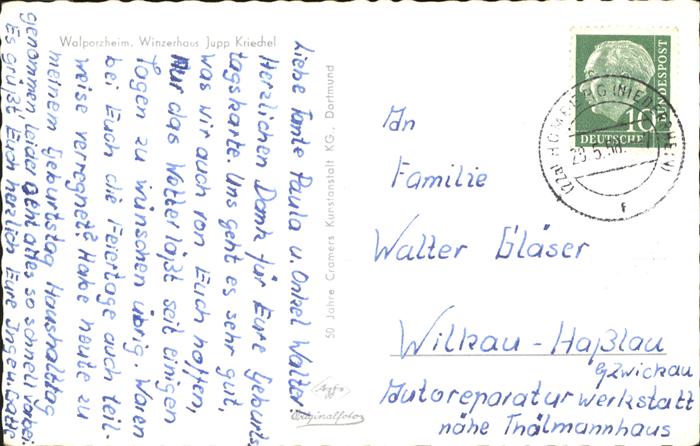 Walporzheim. Winzerhaus Jupp Kriechel
Liebe Tante Paula u. Onkel Walter.
Herzlichen Dank für Eure Geburts
tagskarte. Uns geht es sehr gut,
was wir auch von Euch hoffen,
Nur das Wetter läßt seit einigen
Tagen zu wünschen übrig. Waren
bei Euch die Feiertage auch teil-
weise verregnet? Habe heute zu
meinem Geburtstag Haushalttag
genommen, leider geht alles so schnell vorbei.
Es grüßt Euch herzlich Eure Inge u.
50 Jahre Cramers Kunstanstalt KG., Dortmund
Agfa
Originalfoto
DEUTSCHE
BUNDESPOST
10
(22a) HOMBERG (NIEDERRHEIN)
28.5.
f
An
Familie
Walter Gläser
Wilkau-Haßlau
b/Zwickau
Autoreparaturwerkstatt
nähe Thälmannhaus